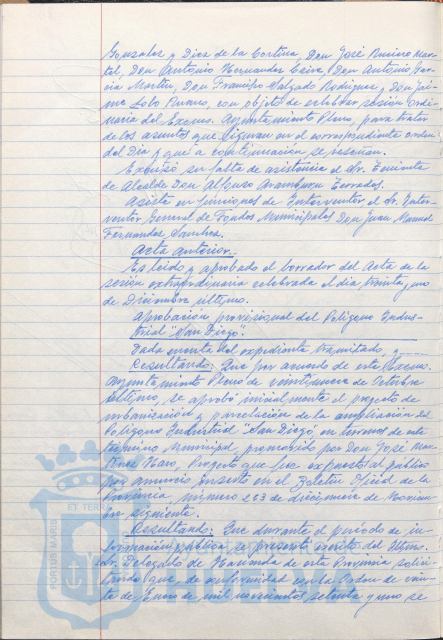 Gonzalez y Diez de la Cortina, Don José Merino Mar-
tel, Don Antonio Hernandez Ceive, Don Antonio Gar-
cia Martin, Don Francisco Salgado Rodriguez y Don Jai-
me Lobo, con objeto de celebrar sesión Ordi-
naria del Excmo. Ayuntamiento Pleno, para tratar
de los asuntos que figuran en el correspondiente orden
del Dia y que a continuación se reseñan.
Excusó su falta de asistencia el Sr. Teniente
de Alcalde Don Alfonso Aramburu Terrades.
Asiste en funciones de Interventor el Sr. Inter-
ventor General de Fondos Municipales Don Juan Manuel
Fernandez Sanchez.
Acta anterior.
Es leido y aprobado el borrador del Acta de la
sesión extraordinaria celebrada el dia treinta y uno
de Diciembre último.
Aprobación provisional del Poligono Indus-
trial "San Diego".
Dada cuenta del expediente tramitado, y
Resultando: Que por acuerdo de este Excmo.
Ayuntamiento Pleno de veintinueve de Octubre
último, se aprobó inicialmente el proyecto de
urbanización y parcelación de la ampliación del
Poligono Industrial "San Diego" en terrenos de este
término Municipal, promovido por Don José Mar-
tinez, Proyecto que fue expuesto al publico
por anuncio inserto en el Boletin Oficial de la
Provincia, número 263 de dieciseis de Noviem-
bre siguiente.
Resultando: Que durante el periodo de in-
formación pública se presentó escrito del Iltmo.
Sr. Delegado de Hacienda de esta Provincia solici-
tando que, de conformidad con la Orden de vein-
te de Enero de mil novecientos setenta y uno se
PORTUS MARIS
ET TERR